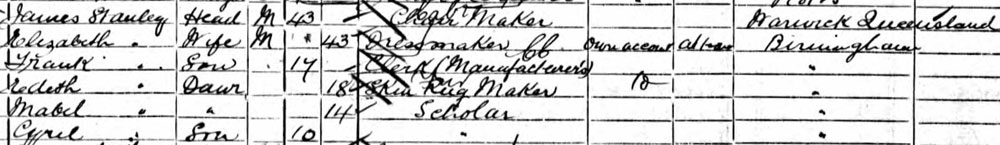 James Stanley Head M 43 Maker Warwick Queensland
Elizabeth " Wife M 43 Dressmaker Own account at home Birmingham
Frank " Son 17 Clerk (Manufacturer's) "
" Daur 18 Rug Maker "
Mabel " " 14 Scholar "
Cyril " Son 10 " "